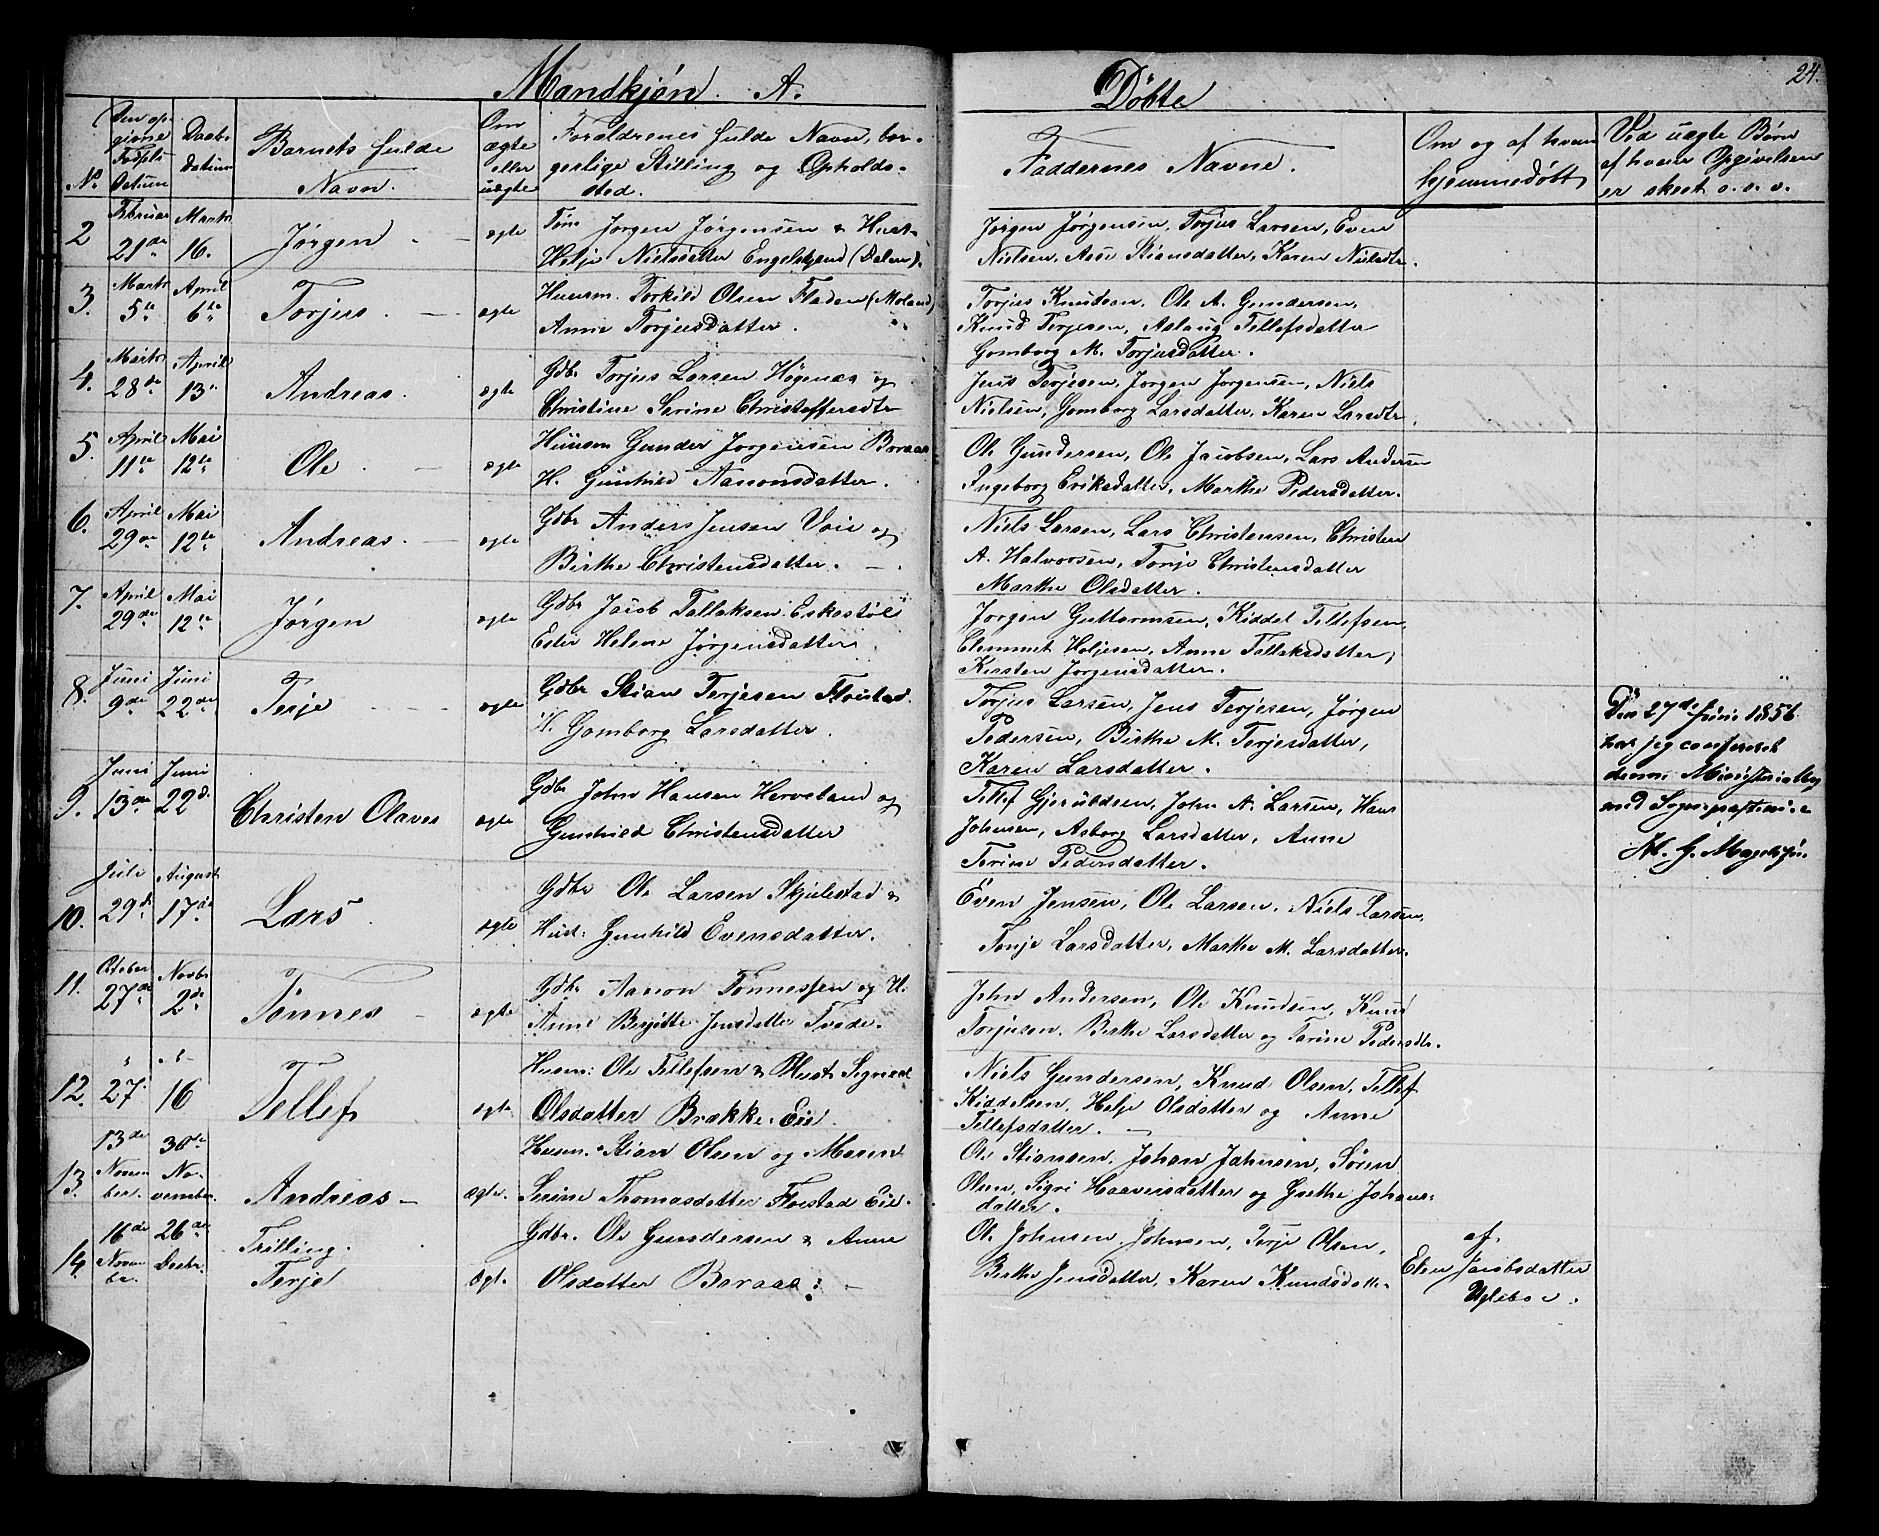 Mandkjøn. A.
Døbte
24.
No
Den op-
givne
Fødsels
Datum
Daabs
Datum
Barnets fulde
Navn.
Om
ægte
eller
uægte
Forældrenes fulde Navn, bor-
gerlige Stilling og Opholds-
sted.
Faddernes Navne.
Om og af hvem
hjemmedøbt
Vid uægte Børn
af hvem Opgivelsen
er skeet o. s. v.
2
Februar
21de
Marts
16.
Jørgen
ægte
Jørgen Jørgensen & Hust.
Helje Nielsdatter Engelskjend (Dalen).
Jørgen Jørgensen, Torjus Larsen, Even
Nielsen, Aase Stiansdatter, Karen Nielsdtr.
3.
Marts
5te
April
6te
Torjus.
ægte
Huusm. Torkild Olsen Fladen (Moland)
Anne Torjusdatter.
Torjus Knudsen, Ole A. Gundersen,
Knud Terjesen, Aslaug Tellefsdatter
Gomborg M. Torjusdatter.
4.
Marts
28de
April
13de
Andreas.
ægte
Gdbr Torjus Larsen Høgenes og
Christine Serine Christoffersdtr
Jens Terjesen, Jørgen Jørgensen, Niels
Nielsen, Gomborg Larsdatter, Karen Larsdtr.
5.
April
11te
Mai
12te
Ole.
ægte
Huusm Gunder Jørgensen Boraas
H. Gunhild Aanonsdatter.
Ole Gundersen, Ole Jacobsen, Lars Andersen
Ingeborg Eriksdatter, Marthe Pedersdatter.
6.
April
29de
Mai
12te
Andreas.
ægte
Gdbr Anders Jensen Voie og
Birthe Christensdatter.
Niels Larsen, Lars Christensen, Christen
A. Halvorsen, Tonje Christensdatter
Marthe Olsdatter.
7.
April
29de
Mai
12te
Jørgen
ægte
Gdbr Jacob Tallaksen Eskestøl
Ester Helene Jørgensdatter.
Jørgen Guttormsen, Kiddel Tellefsen,
Clemmet Heljesen, Anne Tallaksdatter,
Kirsten Jørgensdatter.
8.
Juni
9de
Juni
22de
Terje
ægte
Gdbr Stian Terjesen Floistad.
H. Gomborg Larsdatter.
Torjus Larsen, Jens Terjesen, Jørgen
Pedersen, Birthe M. Terjesdatter,
Karen Larsdatter.
Den 27de Juni 1856
har jeg confereret
denne Ministerialbog
med Sognepræstens
H. G. Magelssen
9.
Juni
13de
Juni
22d.
Christen Olaves
ægte
Gdbr John Hansen Herveland og
Gunhild Christensdatter
Tellef Gjeruldsen, John A. Larsen, Hans
Johnsen, Asborg Larsdatter, Anne
Terine Pedersdatter.
10.
Juli
29d.
August
17de
Lars.
ægte
Gdbr Ole Larsen Skjulestad &
Hust: Gunhild Evensdatter.
Even Jensen, Ole Larsen, Niels Larsen,
Tonje Larsdatter, Marthe M. Larsdatter.
11.
October
27de
Novbr
2de
Tønnes
ægte
Gdbr Aanon Tønnessen og H.
Anne Birgitte Jensdatter Tvede.
John Andersen, Ole Knudsen, Knud
Torjusen, Birthe Larsdatter og Tarine Pedersdtr.
12.
" "
27.
16
Tellef
ægte
Husm: Ole Tellefsen & Hust. Segned
Olsdatter Brække. Eie.
Niels Gundersen, Knud Olsen, Tellef
Kiddelsen, Helje Olsdatter og Anne
Tellefsdatter.
13.
13de
Novem
ber.
30te
No-
vember.
Andreas
ægte.
Huusm. Stian Olsen og Maren
Serine Thomasdatter Floistad Eie.
Ole Stiansen, Johan Johnsen, Søren
Olsen, Sigri Haaversdatter og Grethe Johans-
datter.
14.
16de
Novem
br.
26de
Decbr.
Trilling.
Terje
Ægt.
Gdbr. Ole Gundersen & Anne
Olsdatter Boraas.
Ole Johnsen, Johnsen, Terje Olsen,
Berthe Jensdatter, Karen Knudsdatter
af.
Elen Jacobsdatter
Uglebo.